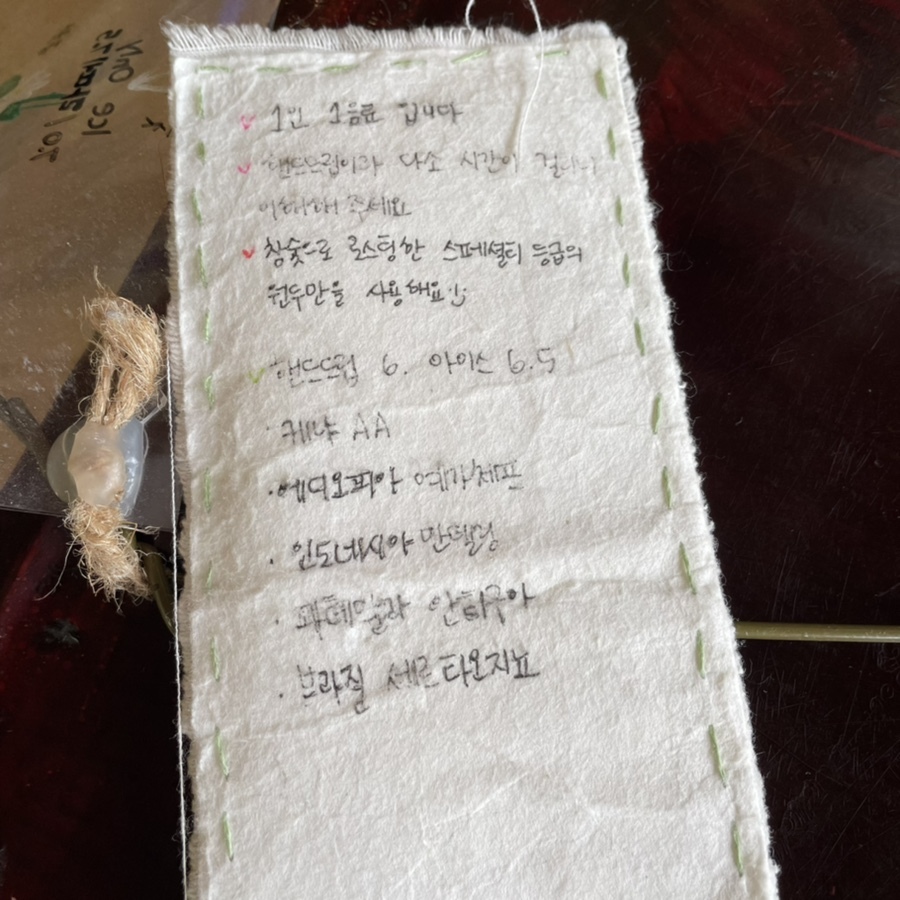 ♥ 1인 1음료 입니다
♥ 핸드드립이라 다소 시간이 걸리니
이해해 주세요
♥ 참숯으로 로스팅한 스페셜티 등급의
원두만을 사용해요 :)
✓ 핸드드립 6. 아이스 6.5
· 케냐 AA
· 에디오피아 예가체프
· 인도네시아 만델링
· 과테말라 안티구아
· 브라질 세르타오지뇨